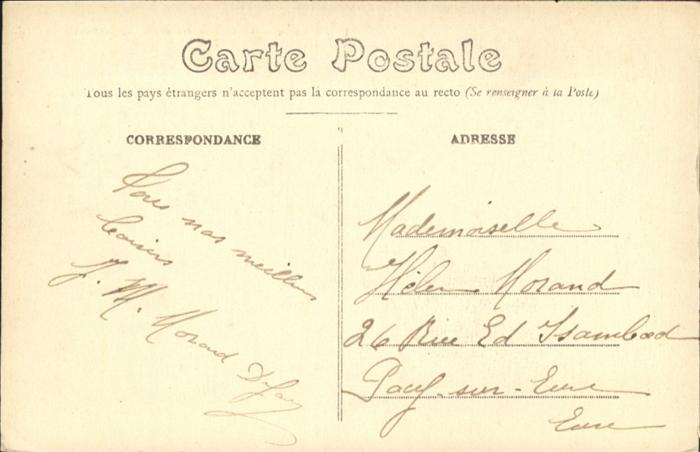 Carte Postale
Tous les pays étrangers n'acceptent pas la correspondance au recto (Se renseigner à la Poste)
CORRESPONDANCE
Tous nos meilleurs
baisers
J. M. Morand
ADRESSE
Mademoiselle
Hélène Morand
26 Rue Ed Isambard
Pacy-sur-Eure
Eure